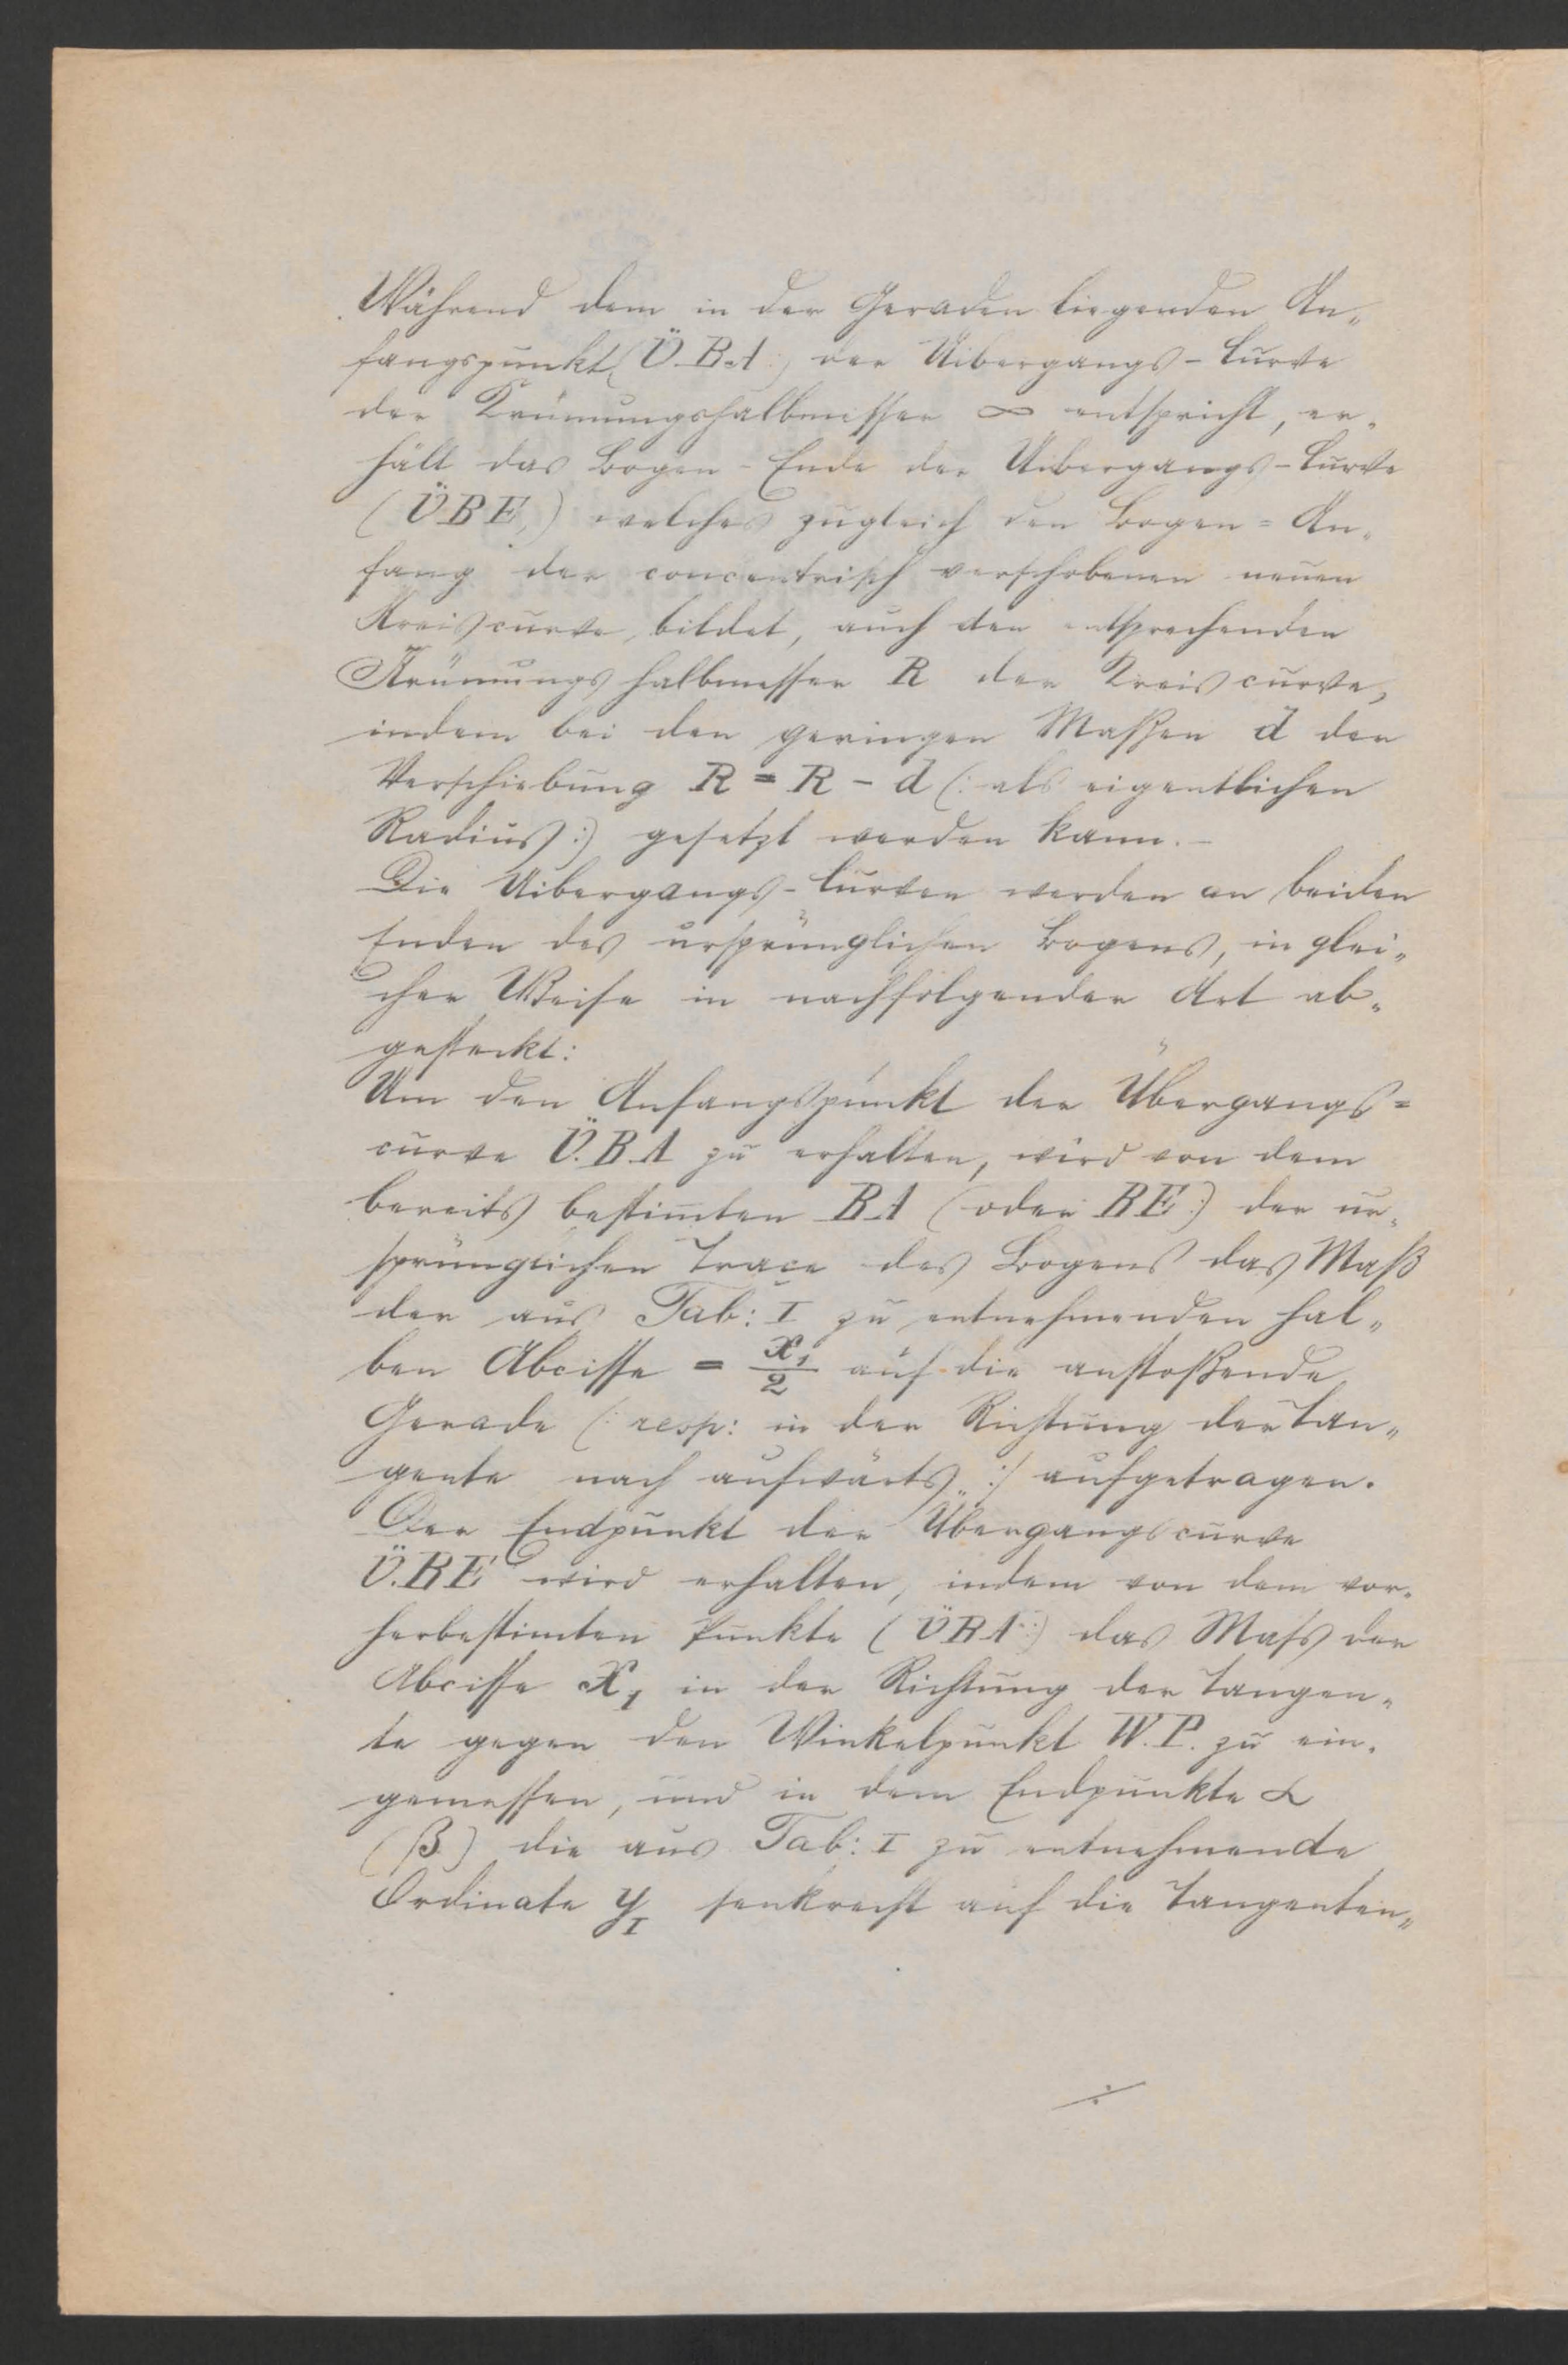 Während dem in der Geraden liegenden An„
fangspunkt (Ü.B.A:) der Uibergangs-Curve
der Krümungshalbmesser ∞ entspricht, er„
hält das Bogen-Ende der Uibergangs-Curve
(ÜBE,) welches zugleich den Bogen=An„
fang der concentrisch verschobenen neuen
Kreiscurve, bildet, auch den entsprechenden
Krümungshalbmesser R der Kreiscurve,
indem bei den geringen Maßen d der
Verschiebung R = R - d (: als eigentlichen
Radius :) gesetzt werden kann. -
Die Uibergangs-Curven werden an beiden
Enden des ursprünglichen Bogens, in glei„
cher Weise in nachfolgender Art ab„
gesteckt:
Um den Anfangspunkt der Übergangs=
curve Ü.B.A zu erhalten, wird von dem
bereits bestimten BA (oder BE:) der ur„
sprünglichen Trace des Bogens das Maß
der aus Tab: I zu entnehmenden hal„
ben Abcisse = x₁/2 auf die anstoßende
Gerade (: resp: in der Richtung der Tan„
gente nach aufwärts„ :/ aufgetragen.
Der Endpunkt der Übergangscurve
Ü.BE wird erhalten, indem von dem vor„
herbestimten Punkte (ÜBA:) das Mass der
Abcisse X₁ in der Richtung der Tangen„
te gegen den Winkelpunkt W.P. zu ein„
gemessen, und in dem Endpunkte α
(β) die aus Tab: I zu entnehmende
Ordinate y_I senkrecht auf die Tangenten„
÷